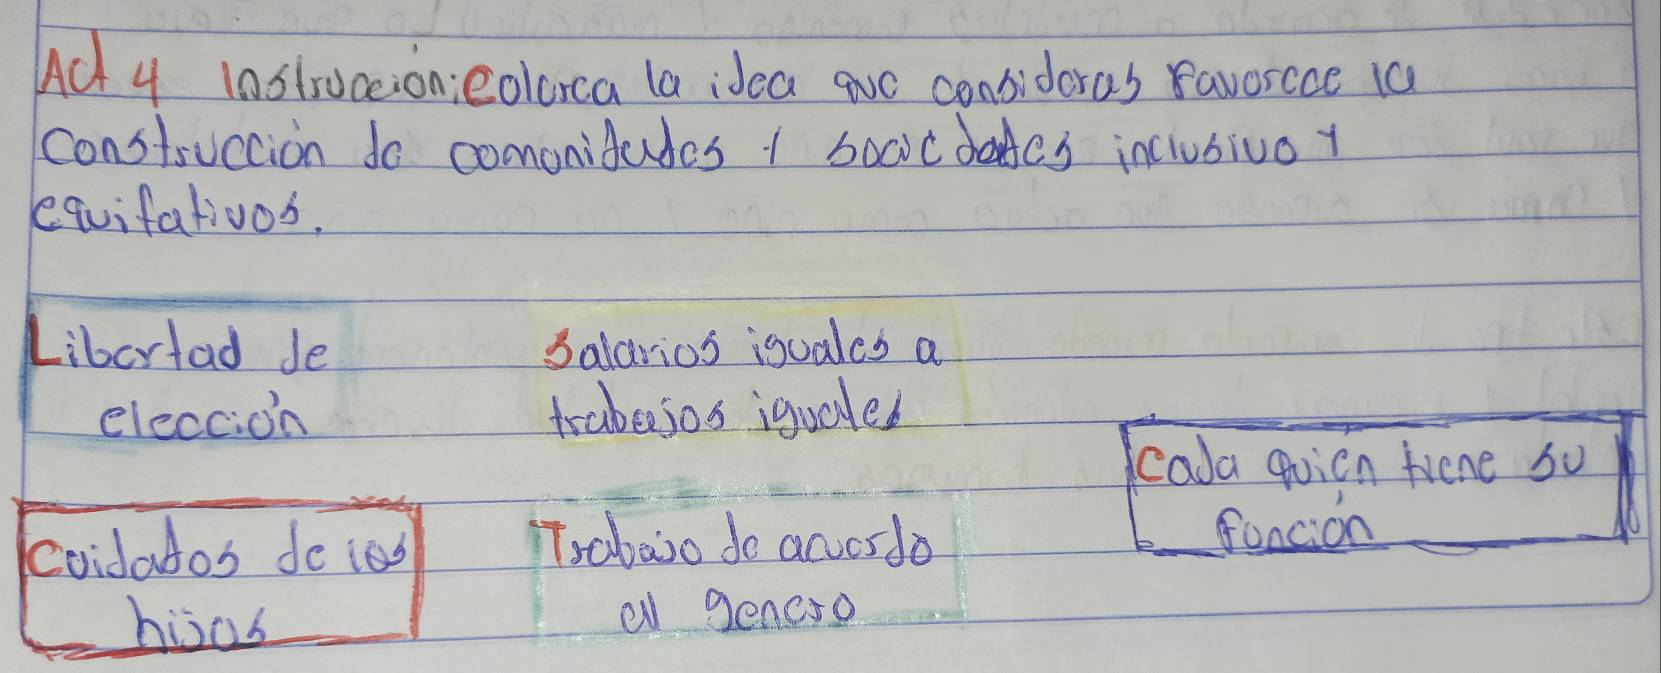 Act 4 Instrucción: Colorca la idea que consideras Favorece la
construcción de comunidades y sociedades inclusivo y
equitativos.
Libertad de
elección
Salarios iguales a
trabajos iguales
Cada quién tiene su
función
Cuidados de los
hijos
Trabajo de acuerdo
al genero